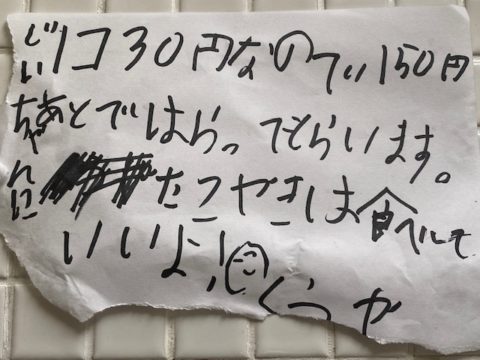 じいちゃんに
1コ30円なので、150円
あとではらってもらいます。
たこやきは食べて
いいよ!